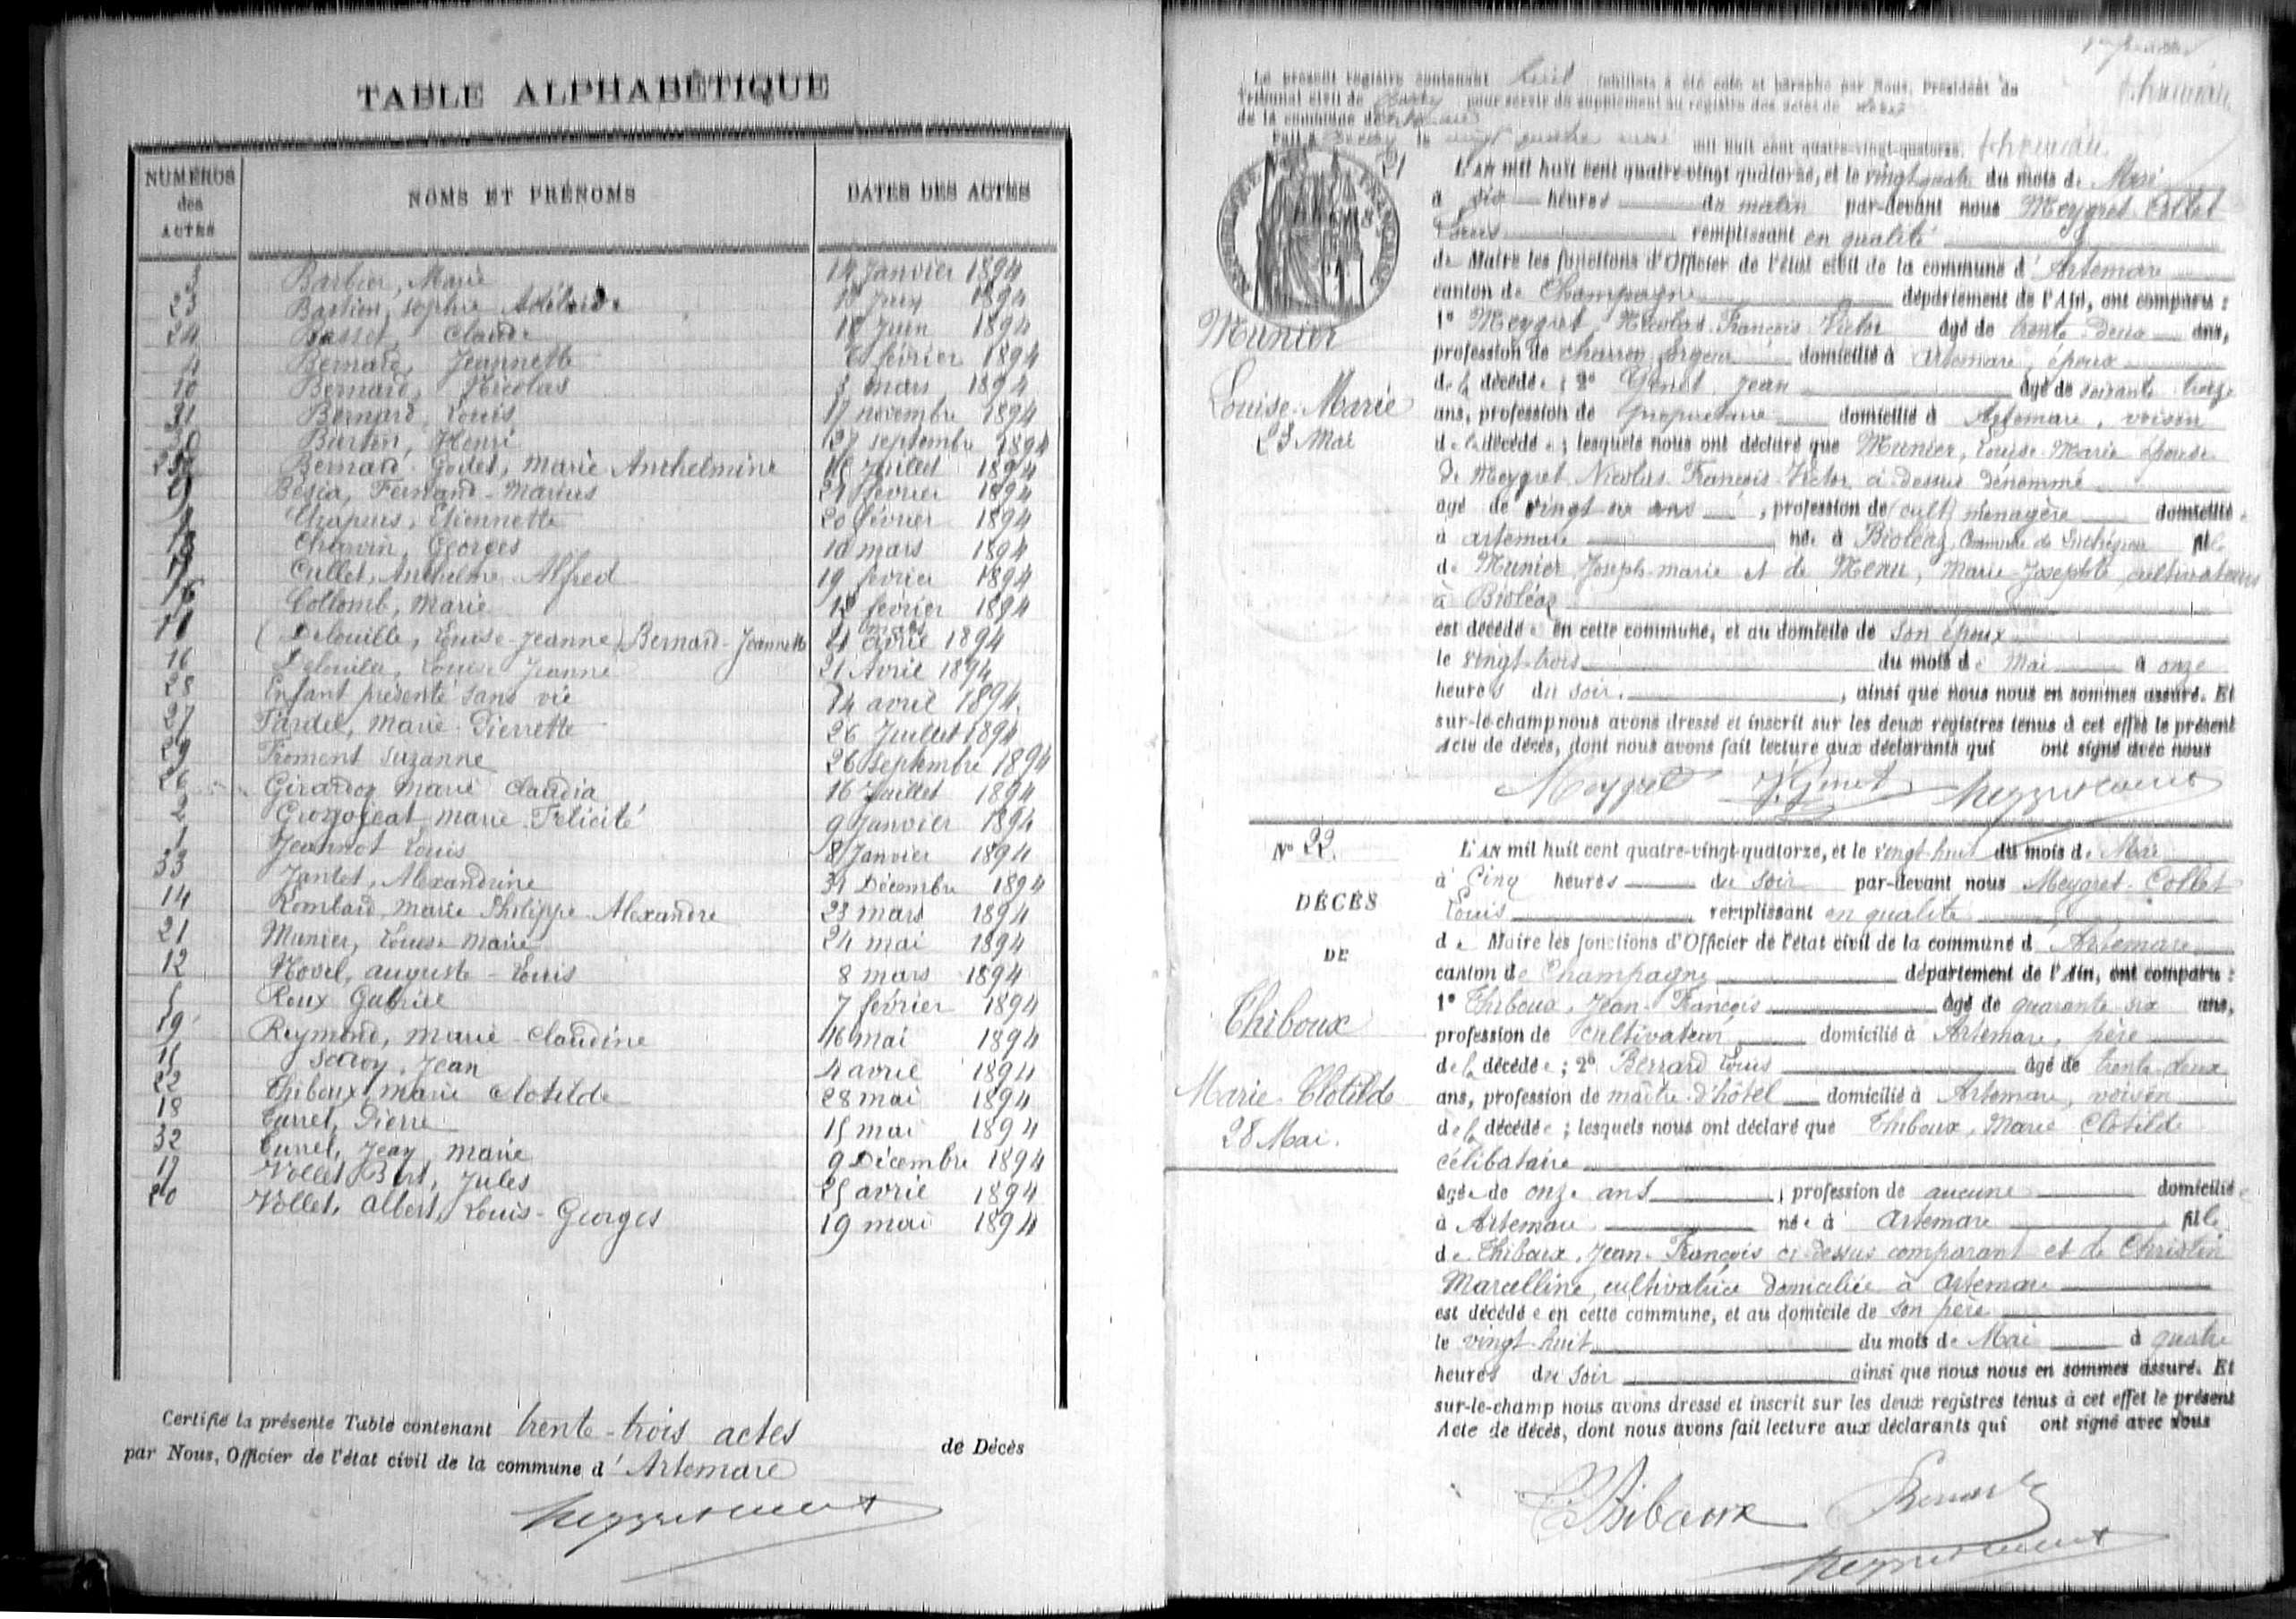 TABLE ALPHABÉTIQUE
NUMÉROS des ACTES
NOMS ET PRÉNOMS
DATES DES ACTES
3 Barbier, Marie 14 Janvier 1894
23 Bastien, Sophie Adélaïde Juin 1894
24 Basset, Claude 18 Juin 1894
4 Bernard, Jeannette 6 février 1894
10 Bernard, Nicolas 3 mars 1894
31 Bernard, Louis 17 novembre 1894
30 Burtin, Henri septembre 1894
Bernard-Godet, Marie Anthelmine Juillet 1894
9 Fernand-Marius 21 février 1894
Chapuis, Etiennette 20 février 1894
13 Charvin, Georges 10 mars 1894
Cullet, Anthelme Alfred 19 février 1894
Collomb, Marie février 1894
(Delouille, Louise-Jeanne) Bernard-Jeannette mars 1894
16 Delouille, Louise Jeanne 21 Avril 1894
28 Enfant présenté sans vie 14 avril 1894
27 Tardel, Marie-Pierrette 26 Juillet 1894
29 Froment Suzanne 26 septembre 1894
26 Girardoz Marie Claudia 16 Juillet 1894
2 Marie-Félicité 9 Janvier 1894
1 Jeannot Louis 8 Janvier 1894
33 Jantet, Alexandrine 31 Décembre 1894
14 Lombard, Marie Philippe-Alexandre 23 mars 1894
21 Munier, Louise Marie 24 mai 1894
12 Novel, auguste-Louis 8 mars 1894
5 Roux Gabriel 7 février 1894
19 Reymond, Marie-Claudine 16 mai 1894
Jean 4 avril 1894
22 Thiboux, Marie Clotilde 28 mai 1894
18 Turret, Pierre 15 mai 1894
32 Turrel, Jean, Marie 9 Décembre 1894
17 Vollet Bert, Jules 25 avril 1894
20 Vollet, Albert, Louis-Georges 19 mai 1894
Certifié la présente Table contenant trente-trois actes de Décès
par Nous, Officier de l'état civil de la commune d'Artemare
Le présent registre contenant huit feuillets a été coté et paraphé par Nous, Président du
Tribunal civil de Belley pour servir de supplément au registre des actes de décès
de la commune d'Artemare
Fait à Belley le vingt quatre mai mil huit cent quatre-vingt-quatorze.
21
Munier
Louise-Marie
23 Mai
L'AN mil huit cent quatre-vingt-quatorze, et le vingt quatre du mois de Mai
à dix heures du matin par-devant nous Meygret-Collet
Louis remplissant en qualité
de Maire les fonctions d'Officier de l'état civil de la commune d'Artemare
canton de Champagne département de l'Ain, ont comparu :
1° Meygret, Nicolas-François-Victor âgé de trente-deux ans,
profession de charron forgeur domicilié à Artemare, époux
de la décédée ; 2° Génet, Jean âgé de soixante treize
ans, profession de propriétaire domicilié à Artemare, voisin
de la décédée ; lesquels nous ont déclaré que Munier, Louise-Marie épouse
de Meygret Nicolas-François-Victor, ci-dessus dénommé
agé de vingt six ans, profession de (cult) ménagère domiciliée
à artemare née à Bioléaz, Commune de fille
de Munier Joseph-marie et de Menu, Marie-Josephte cultivateurs
à Bioléaz
est décédée en cette commune, et au domicile de son époux
le vingt-trois du mois de Mai à onze
heures du soir, ainsi que nous nous en sommes assuré. Et
sur-le-champ nous avons dressé et inscrit sur les deux registres tenus à cet effet le présent
Acte de décès, dont nous avons fait lecture aux déclarants qui ont signé avec nous
Meygret J. Génet
N° 22.
DÉCÈS
DE
Thiboux
Marie-Clotilde
28 Mai.
L'AN mil huit cent quatre-vingt-quatorze, et le vingt-huit du mois de Mai
à Cinq heures du soir par-devant nous Meygret-Collet
Louis remplissant en qualité
de Maire les fonctions d'Officier de l'état civil de la commune d'Artemare
canton de Champagne département de l'Ain, ont comparu :
1° Thiboux, Jean-François âgé de quarante six ans,
profession de cultivateur domicilié à Artemare, père
de la décédée ; 2° Berrard Louis âgé de trente-deux
ans, profession de maître-d'hôtel domicilié à Artemare, voisin
de la décédée ; lesquels nous ont déclaré que Thiboux, Marie Clotilde
célibataire
âgée de onze ans, profession de aucune domiciliée
à Artemare née à Artemare fille
de Thiboux, Jean-François ci-dessus comparant et de Christin
Marcelline, cultivatrice domiciliée à Artemare
est décédée en cette commune, et au domicile de son père
le vingt-huit du mois de Mai à quatre
heures du soir ainsi que nous nous en sommes assuré. Et
sur-le-champ nous avons dressé et inscrit sur les deux registres tenus à cet effet le présent
Acte de décès, dont nous avons fait lecture aux déclarants qui ont signé avec nous
Thiboux Berrard